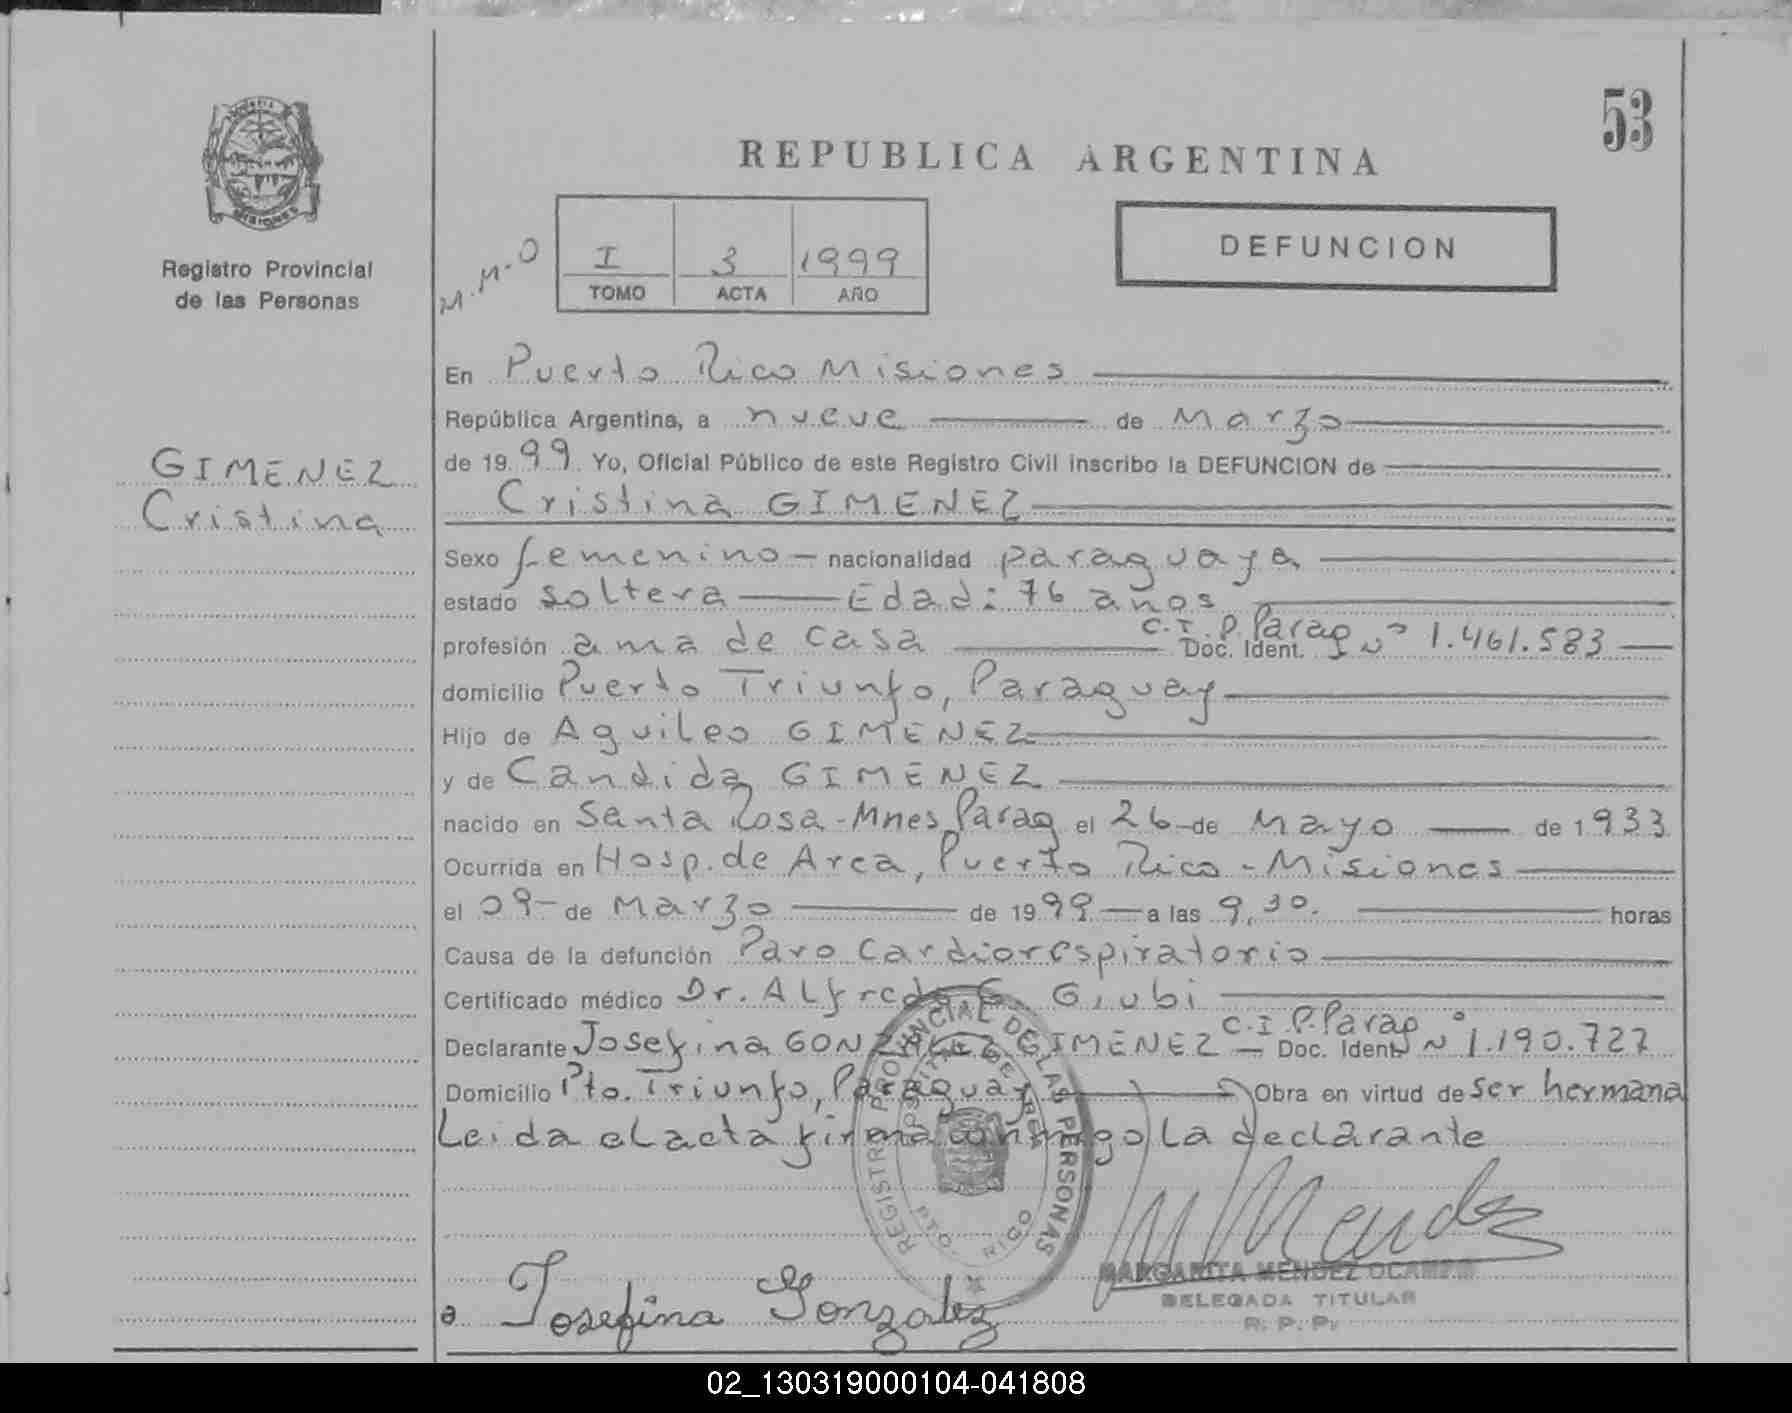 53
REPUBLICA ARGENTINA
MISIONES
Registro Provincial
de las Personas
M.M.O
I 3 1999
TOMO ACTA AÑO
DEFUNCION
GIMENEZ
Cristina
En Puerto Rico Misiones
República Argentina, a nueve de Marzo
de 1999 Yo, Oficial Público de este Registro Civil inscribo la DEFUNCION de
Cristina GIMENEZ
Sexo femenino nacionalidad paraguaya
estado soltera Edad: 76 años
profesión ama de casa Doc. Ident. C.I.P. Parag Nº 1.461.583
domicilio Puerto Triunfo, Paraguay
Hijo de Aguileo GIMENEZ
y de Candida GIMENEZ
nacido en Santa Rosa-Mnes Parag el 26 de Mayo de 1933
Ocurrida en Hosp. de Area, Puerto Rico - Misiones
el 09 de Marzo de 1999 a las 9,30. horas
Causa de la defunción Paro Cardiorespiratorio
Certificado médico Dr. Alfredo G. Giubi
Declarante Josefina GONZALEZ GIMENEZ Doc. Ident. C.I.P. Parag Nº 1.190.727
Domicilio Pto. Triunfo, Paraguay Obra en virtud de ser hermana
Leida el acta firma conmigo la declarante
REGISTRO PROVINCIAL DE LAS PERSONAS
PTO. RICO
Mendez
MARGARITA MENDEZ OCAMPO
DELEGADA TITULAR
R. P. P.
Josefina Gonzalez
02_130319000104-041808